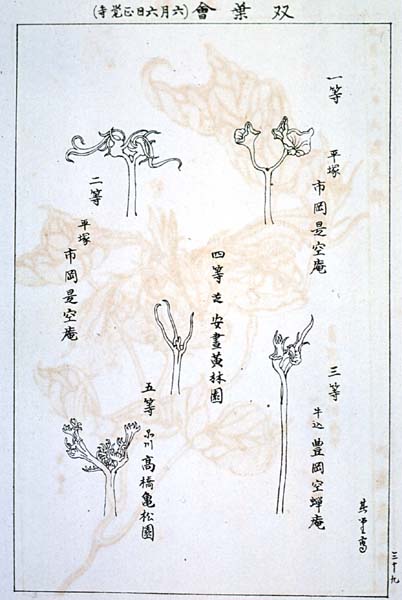 双葉會(六月六日正覚寺)
一等
平塚
市岡是空庵
二等
平塚
市岡是空庵
三等
牛込
豊岡空蝉庵
四等
芝
安晝黄林園
五等
品川
高橋亀松園
三十九